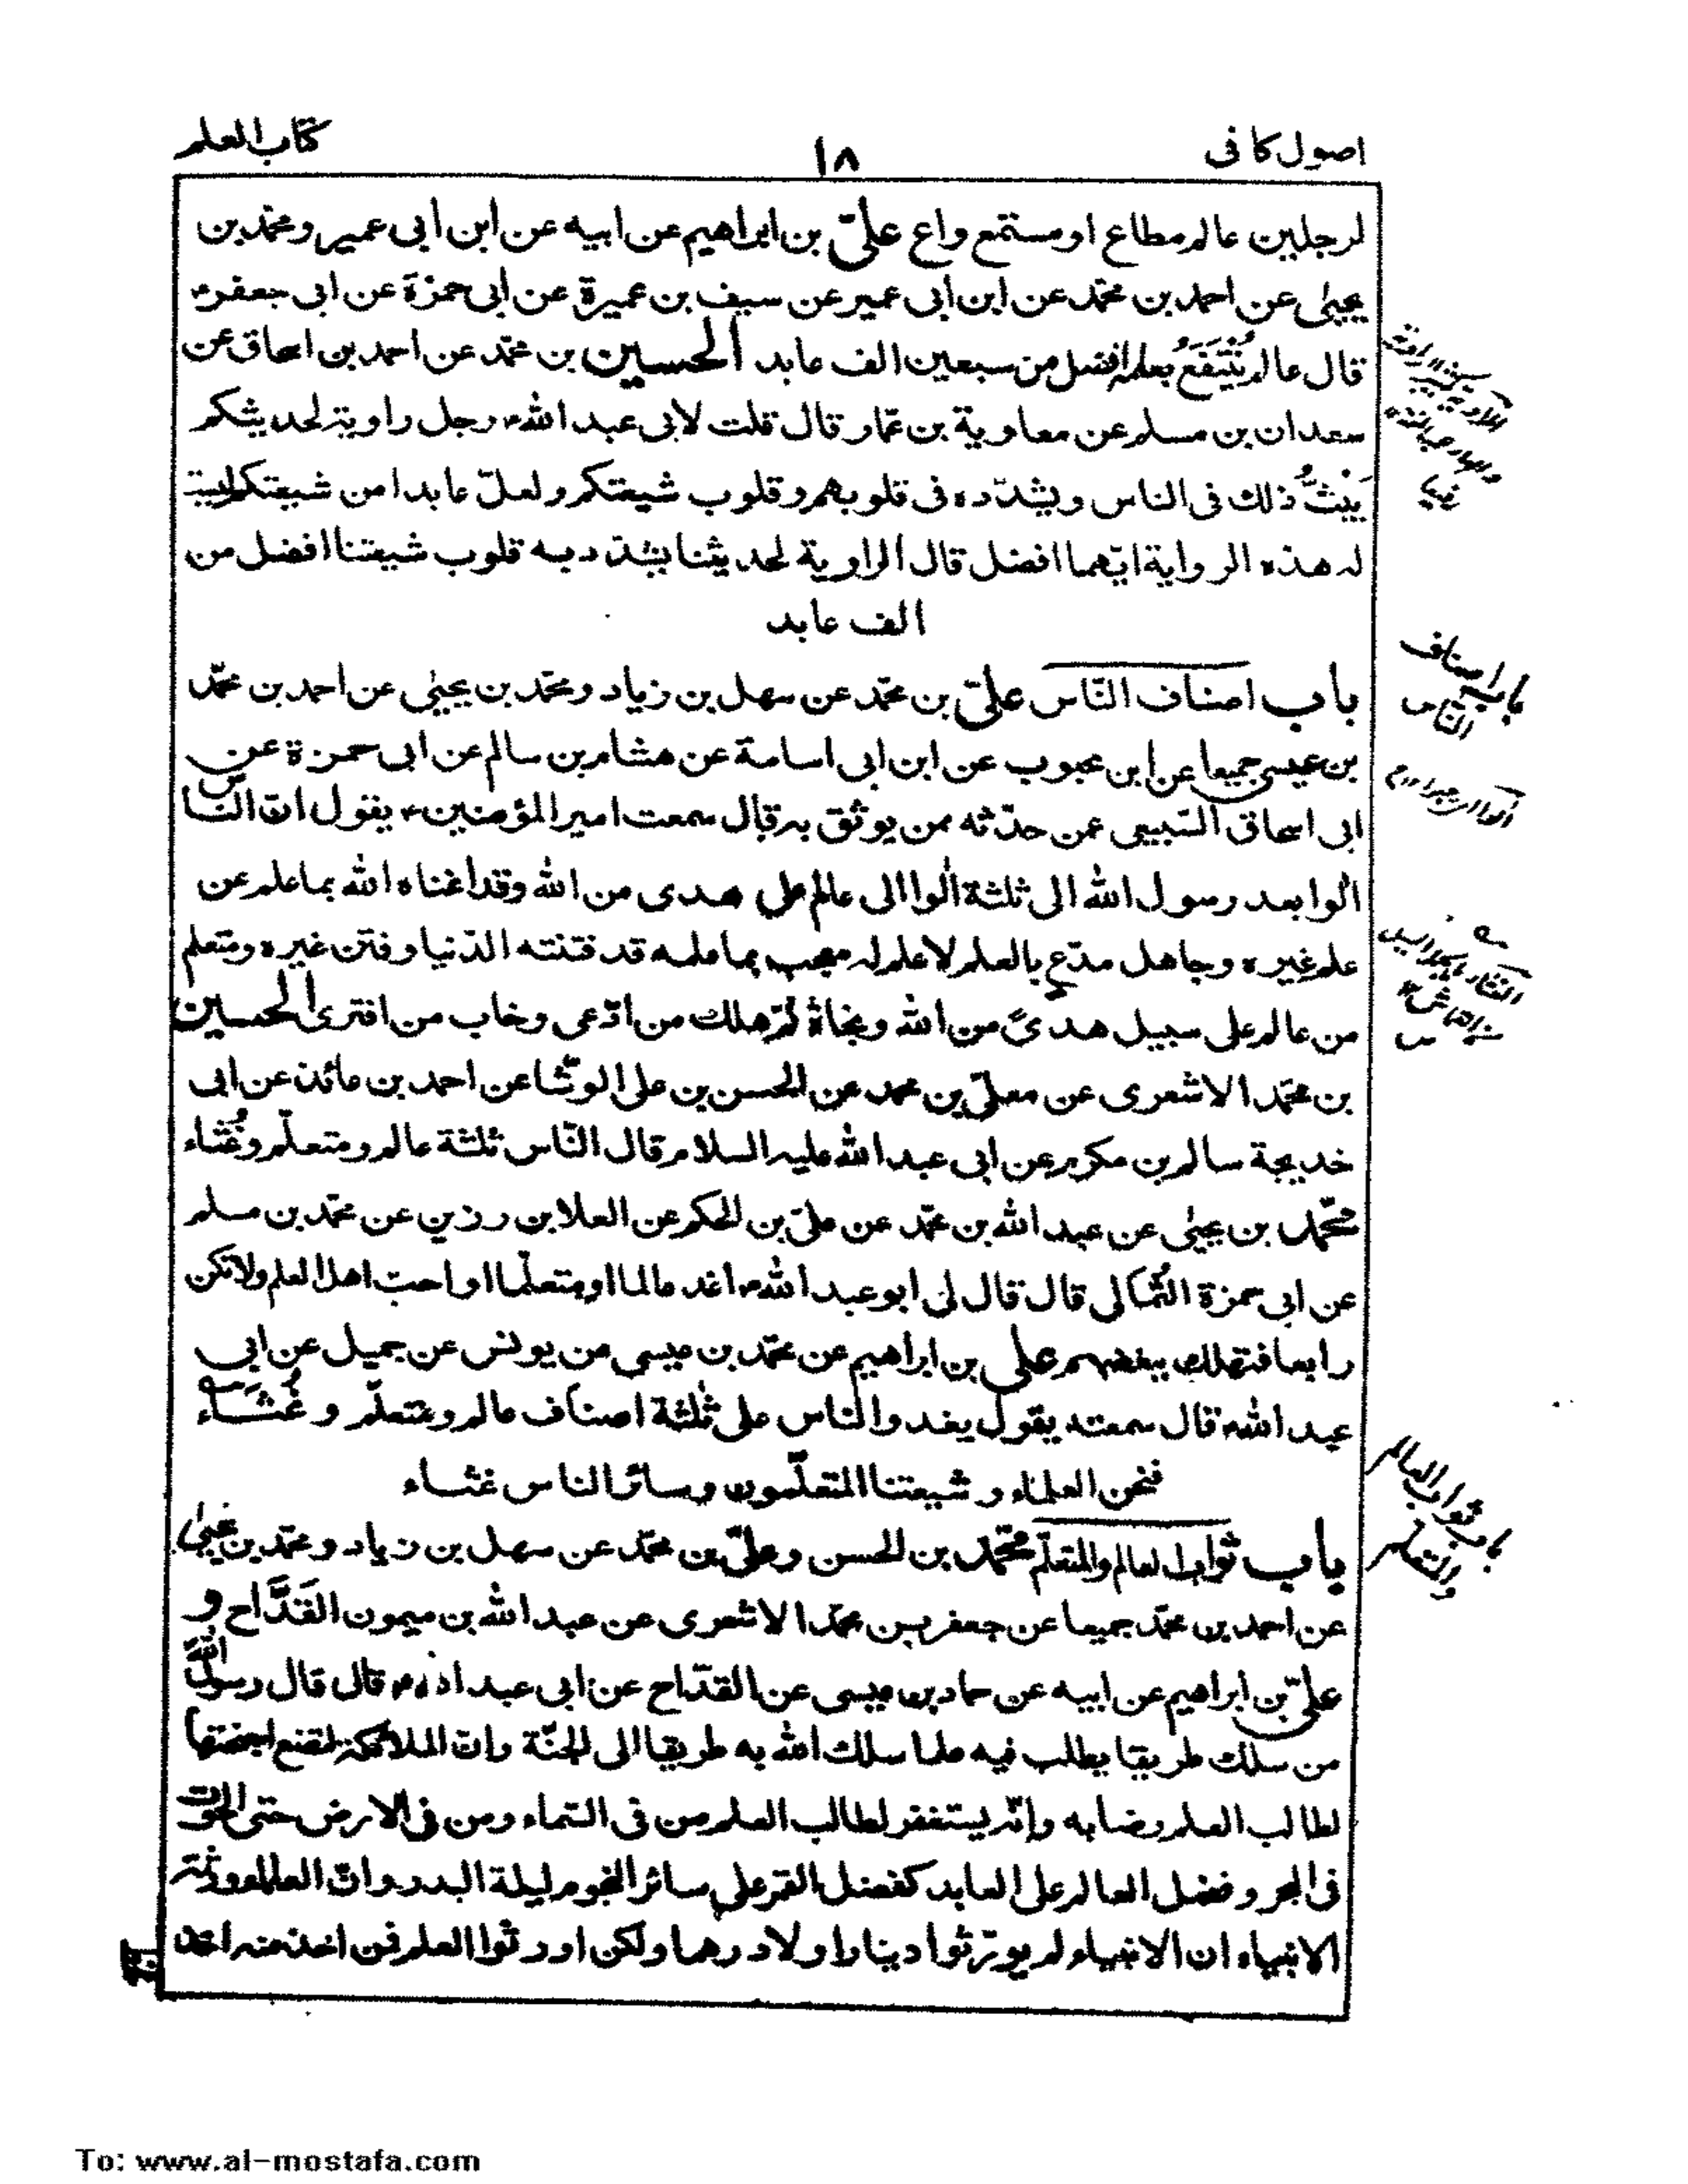 اصول كافى
١٨
كتاب العلم
لرجلين عالم مطاع او مستمع واع علىّ بن ابراهيم عن ابيه عن ابن ابى عمير ومحمّد بن
يحيىٰ عن احمد بن محمّد عن ابن ابى عمير عن سيف بن عميرة عن ابى حمزة عن ابى جعفر ع
قال عالم يُنْتَفَعُ بعلمه افضل من سبعين الف عابد الحسين بن محمّد عن احمد بن اسحاق عن
سعدان بن مسلم عن معاوية بن عمّار قال قلت لابى عبد الله ع رجل راوية لحديثكم
يَبُثُّ ذلك فى الناس ويشدّده فى قلوبهم وقلوب شيعتكم ولعلّ عابدا من شيعتكم ليست
له هذه الرواية ايّهما افضل قال الراوية لحديثنا يشدّ به قلوب شيعتنا افضل من
الف عابد
باب اصناف النّاس علىّ بن محمّد عن سهل بن زياد ومحمّد بن يحيىٰ عن احمد بن محمّد
بن عيسى جميعا عن ابن محبوب عن ابن ابى اسامة عن هشام بن سالم عن ابى حمزة عن
ابى اسحاق السّبيعى عمن حدّثه ممن يوثق به قال سمعت امير المؤمنين ع يقول انّ النّاس
اٰلوا بعد رسول الله الى ثلثة اٰلوا الى عالم على هدى من الله وقد اغناه الله بما علم عن
علم غيره وجاهل مدّع بالعلم لا علم له معجب بما علمه قد فتنته الدّنيا وفتن غيره ومتعلم
من عالم على سبيل هدىً من الله ونجاة ثمّ هلك من ادّعى وخاب من افترى الحسين
بن محمّد الاشعرى عن معلىّ بن محمد عن الحسن بن على الوشّا عن احمد بن عائذ عن ابى
خديجة سالم بن مكرم عن ابى عبد الله عليه السلام قال النّاس ثلثة عالم ومتعلّم وغُثاء
محمّد بن يحيىٰ عن عبد الله بن محمّد عن علىّ بن الحكم عن العلا بن رزين عن محمّد بن مسلم
عن ابى حمزة الثُّمالى قال قال لى ابو عبد الله ع اغد عالما او متعلّما او احبّ اهل العلم ولا تكن
رابعا فتهلك ببغضهم على بن ابراهيم عن محمّد بن عيسى عن يونس عن جميل عن ابى
عبد الله ع قال سمعته يقول يغدوا الناس على ثلٰثة اصناف عالم ومتعلّم وغُثَاء
فنحن العلماء وشيعتنا المتعلّمون وسائر الناس غثاء
باب ثواب العالم والمتعلّم محمّد بن الحسن وعلىّ بن محمّد عن سهل بن زياد ومحمّد بن يحيىٰ
عن احمد بن محمّد جميعا عن جعفر بن محمّد الاشعرى عن عبد الله بن ميمون القَدَّاح و
علىّ بن ابراهيم عن ابيه عن حماد بن عيسى عن القدّاح عن ابى عبد الله ع قال قال رسول الله
من سلك طريقا يطلب فيه علما سلك الله به طريقا الى الجنّة وانّ الملائكة لتضع اجنحتها
لطالب العلم رضا به وانّه يستغفر لطالب العلم من فى السّماء ومن فى الارض حتى الحوت
فى البحر وفضل العالم على العابد كفضل القمر على سائر النجوم ليلة البدر وانّ العلماء ورثة
الانبياء ان الانبياء لم يورّثوا دينارا ولا درهما ولكن اورثوا العلم فمن اخذ منه اخذ
باب اصناف
النّاس
باب ثواب العالم
والمتعلم
To: www.al-mostafa.com